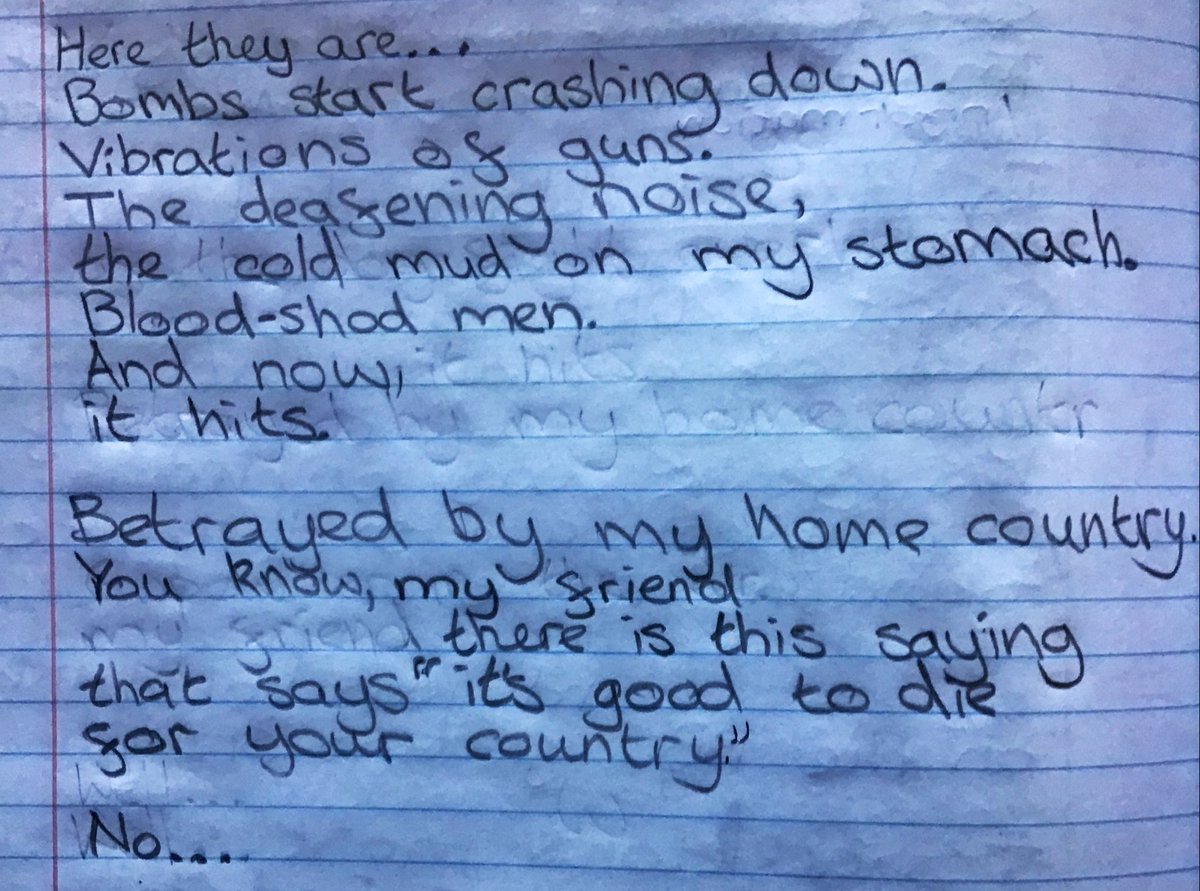 Here they are...
Bombs start crashing down.
Vibrations of guns.
The deafening noise,
the cold mud on my stomach.
Blood-shod men.
And now,
it hits.
Betrayed by my home country.
You know, my friend
there is this saying
that says "it's good to die
for your country."
No....